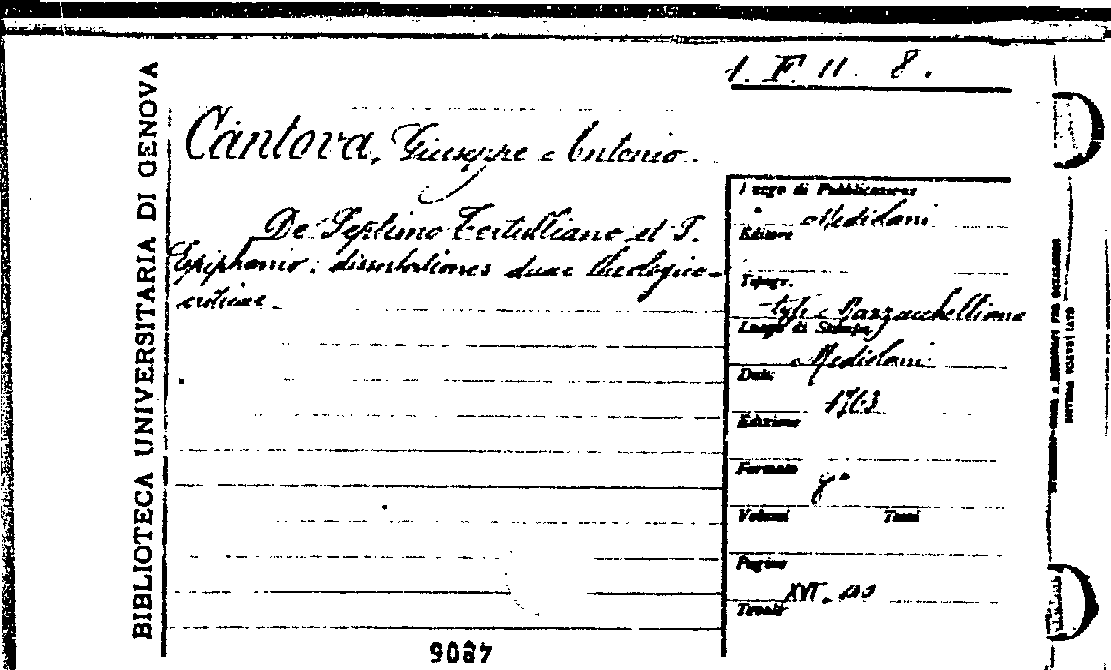 1. F. 11. 8.
BIBLIOTECA UNIVERSITARIA DI GENOVA
Cantova, Giuseppe Antonio.
De Septimo Tertulliano et S.
Epiphanio: dissertationes duae theologico-
criticae.
Luogo di Pubblicazione
Mediolani
Editore
Tipogr.
typ.
Luogo di Stampa
Mediolani
Data
1763
Edizione
Formato
8°
Volumi Tomi
Pagine
XVI.
Tavole
9087